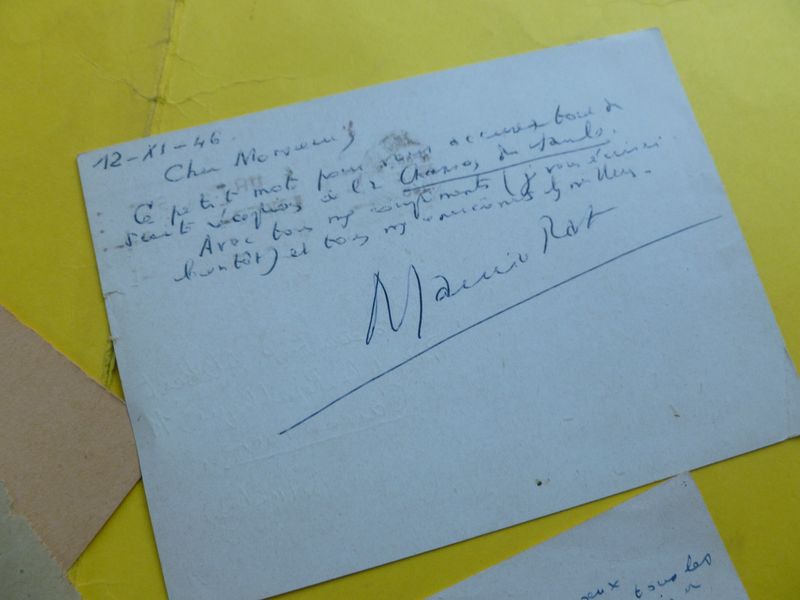 12-XI-46.
Cher Monsieur,
Ce petit mot pour vous accuser bonne
réception de la Chanson du Saule.
Avec tous mes compliments (je vous écrirai
bientôt) et tous mes souvenirs les meilleurs.
Maurice Rat
eux
tous les